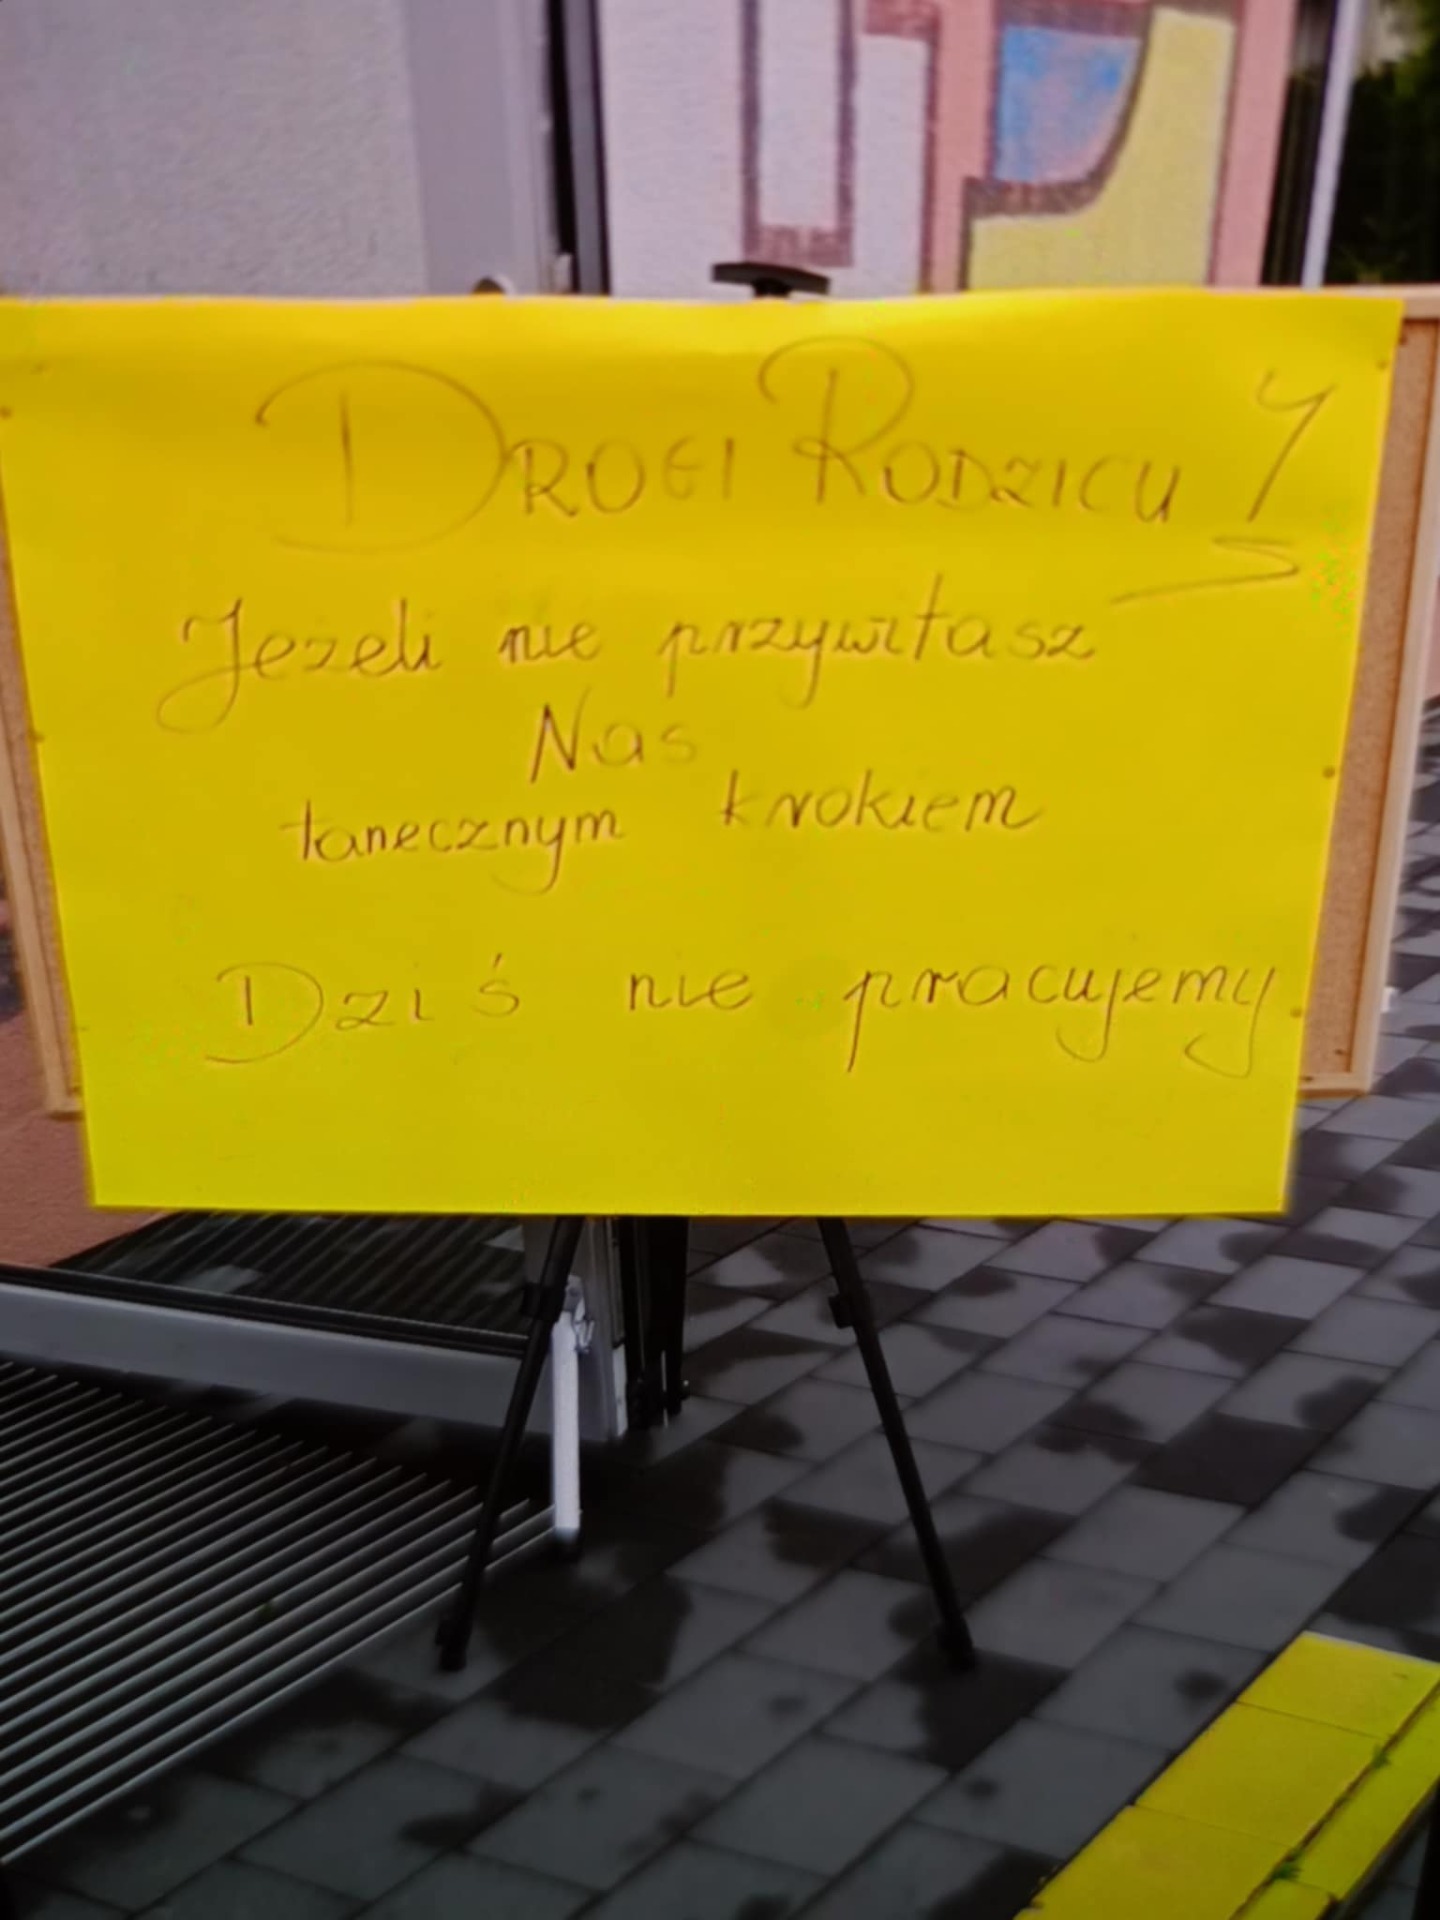 DROGI RODZICU !
Jeżeli nie przywitasz
Nas
tanecznym krokiem
Dziś nie pracujemy